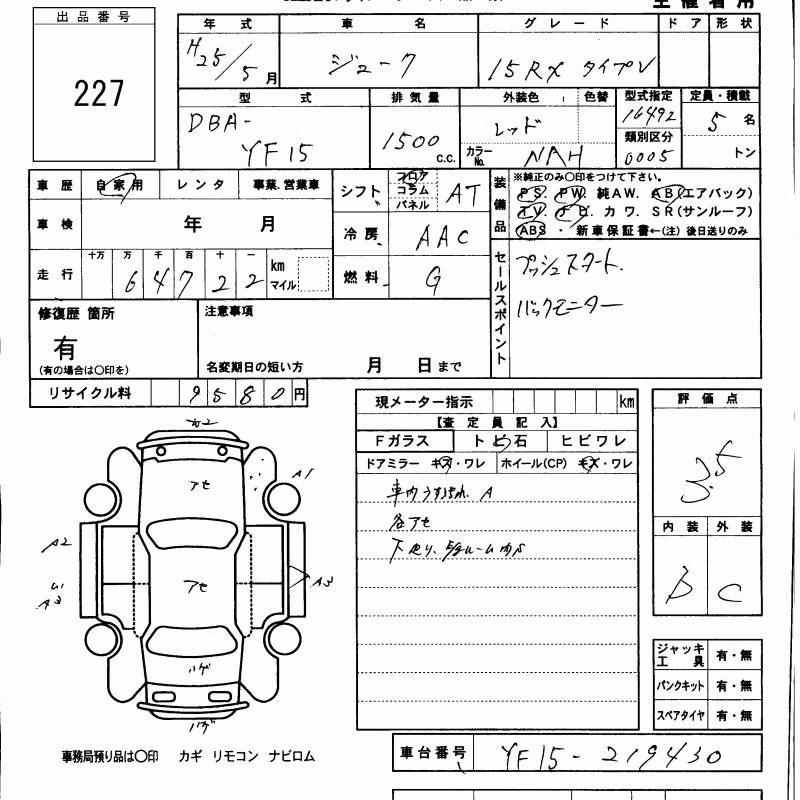 主催者用
出品番号 年式 車名 グレード ドア 形状
227 H25/5月 ジューク 15RX タイプV
型式 排気量 外装色 色替 型式指定 定員・積載
DBA-YF15 1500 c.c. レッド 16492 5名
カラーNo. NAH 類別区分 0005 トン
車歴 自家用 レンタ 事業.営業車 シフト フロア コラム パネル AT
装備品 ※純正のみ○印をつけて下さい。
PS. PW. 純AW. AB(エアバック)
車検 年 月 冷房 AAC
カワ. SR(サンルーフ)
ABS ・ 新車保証書←(注) 後日送りのみ
走行 十万 万 千 百 十 一 km マイル
64722
燃料 G
セールスポイント プッシュスタート.
バックモニター
修復歴 箇所 注意事項
有
(有の場合は○印を) 名変期日の短い方 月 日まで
リサイクル料 9580円
現メーター指示 km
評価点
【査定員記入】
Fガラス トビ石 ヒビワレ
ドアミラー キズ・ワレ ホイール(CP) キズ・ワレ
3.5
A1
アセ
A2
アセ
A3
A3
ハゲ
ハゲ
車内うすよごれ A
各アセ
内装 外装
B C
ジャッキ工具 有・無
パンクキット 有・無
スペアタイヤ 有・無
事務局預り品は○印 カギ リモコン ナビロム
車台番号 YF15-219430